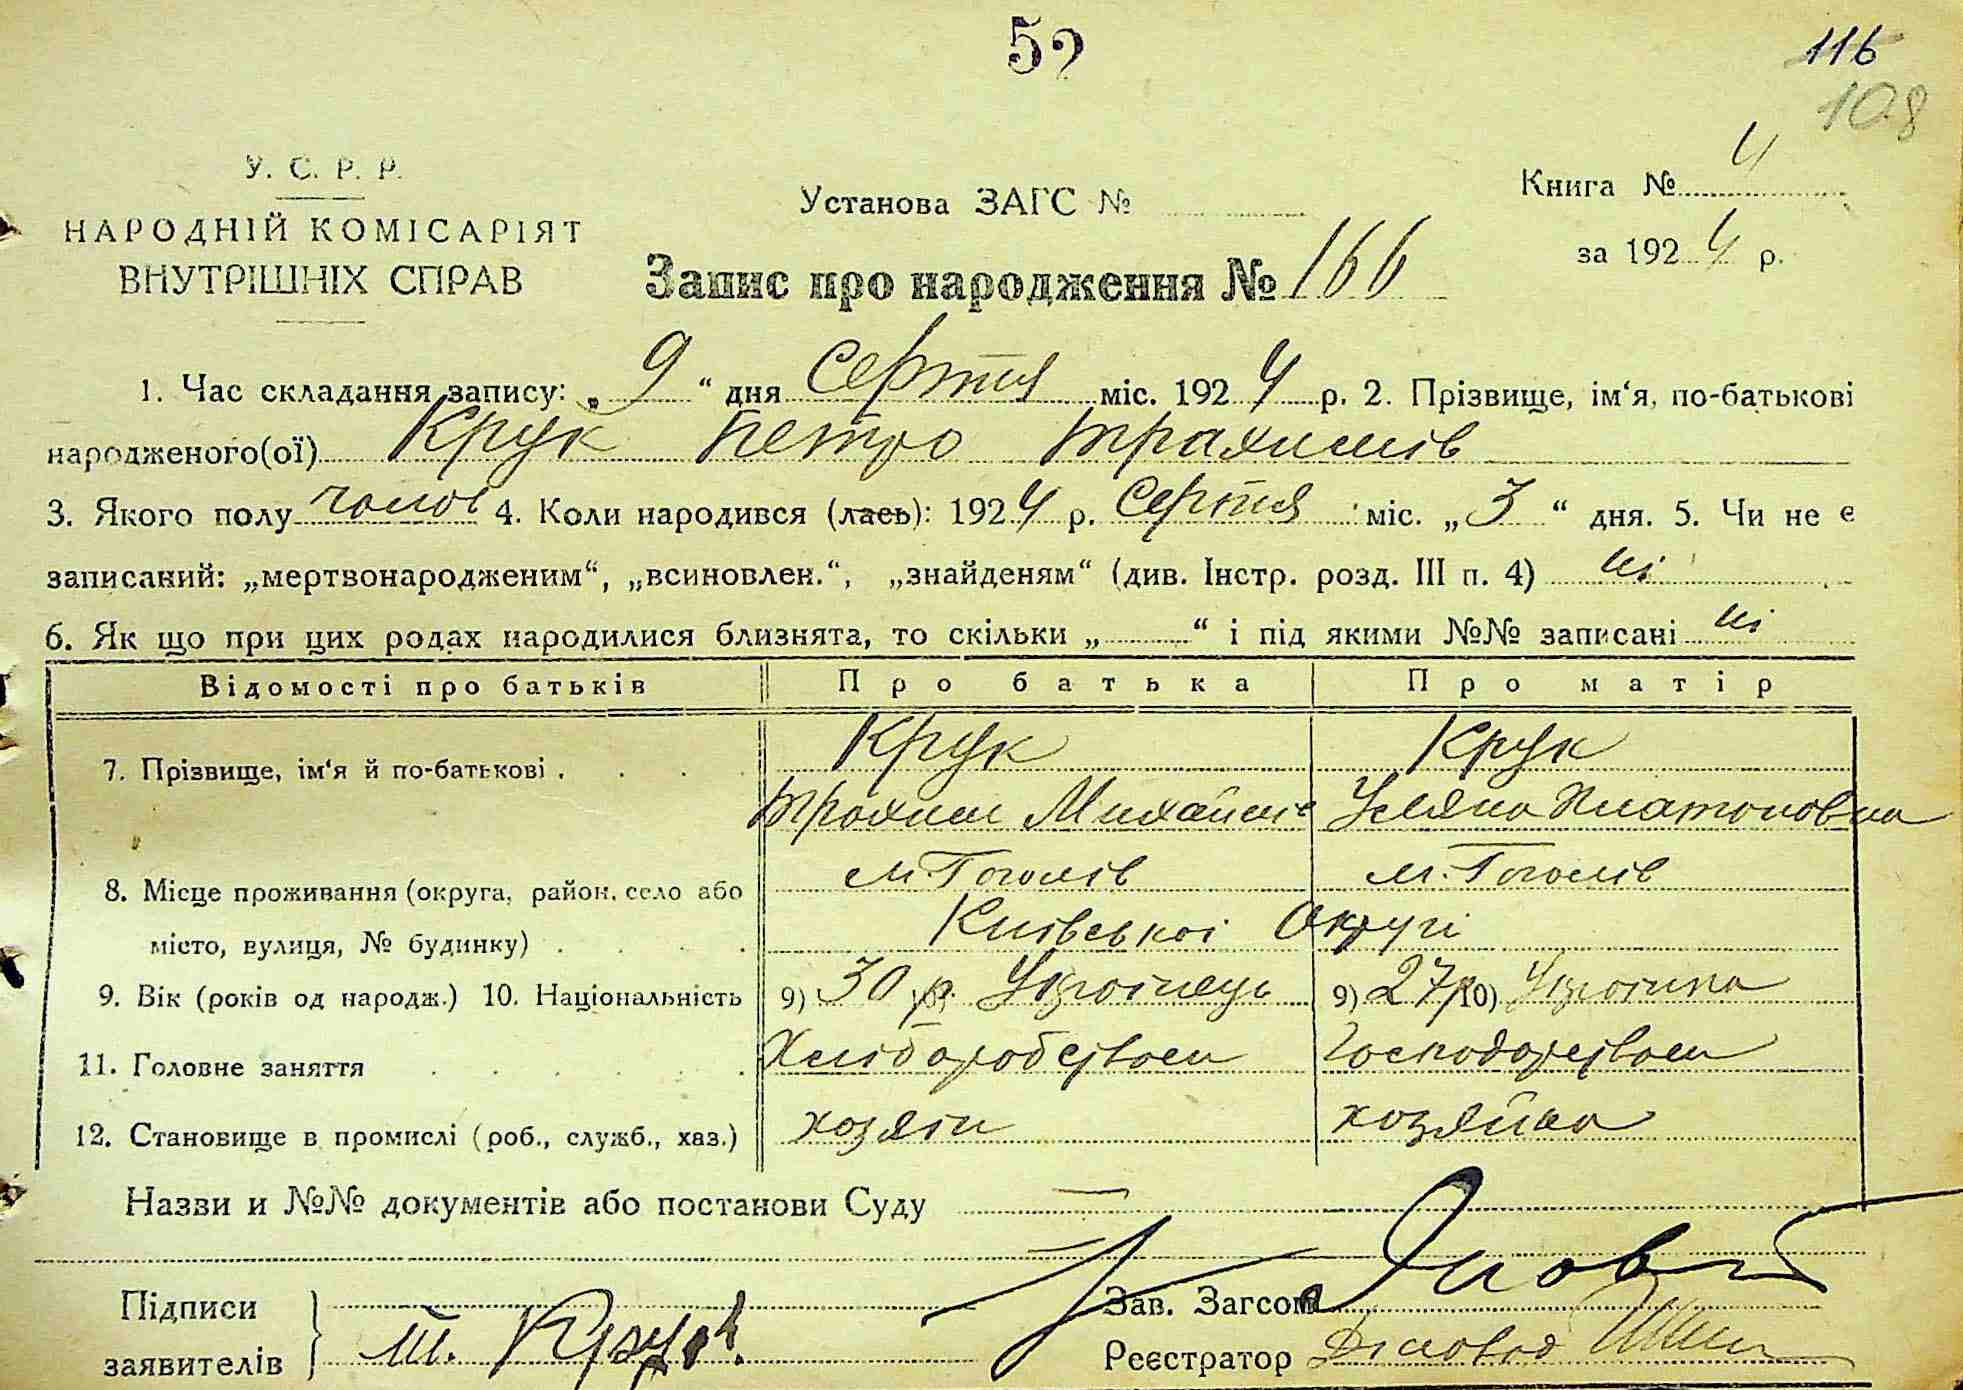 52
116
108
У. С. Р. Р.
НАРОДНІЙ КОМІСАРІЯТ
ВНУТРІШНІХ СПРАВ
Установа ЗАГС №
Книга № 4
за 1924 р.
Запис про народження № 166
1. Час складання запису: „9“ дня Серпня міс. 1924 р. 2. Прізвище, ім‘я, по-батькові
народженого(ої) Крук Петро Трахимів
3. Якого полу чолов 4. Коли народився (лась): 1924 р. Серпня міс. „3“ дня. 5. Чи не є
записаний: „мертвонародженим“, „всиновлен.“, „знайденям“ (див. Інстр. розд. III п. 4) ні
6. Як що при цих родах народилися близнята, то скільки „ “ і під якими №№ записані ні
Відомості про батьків Про батька Про матір
7. Прізвище, ім‘я й по-батькові . Крук Крук
Трохим Михайлів Уляна Платоновна
8. Місце проживання (округа, район, село або м. Гоголів м. Гоголів
місто, вулиця, № будинку) . Київської Округі
9. Вік (років од народж.) 10. Національність 9) 30 р. Українець 9) 27 р 10) Українка
11. Головне заняття Хліборобством Господарством
12. Становище в промислі (роб., служб., хаз.) хозяін хозяйка
Назви и №№ документів або постанови Суду —
Підписи
заявителів
Т. Крук
Зав. Загсом
Реєстратор Діловод